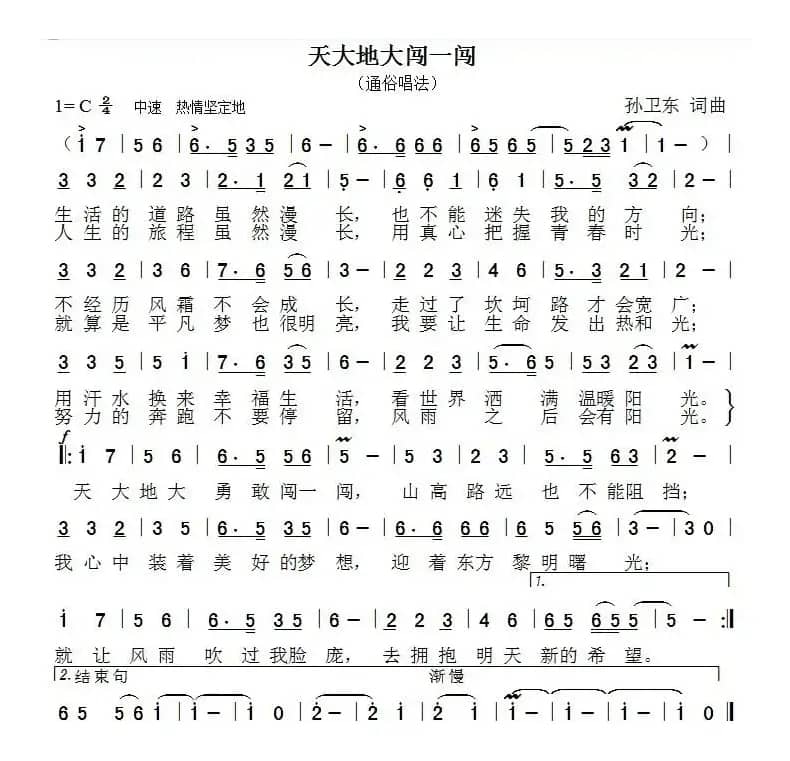 天大地大闯一闯
（通俗唱法）
1= C 2/4 中速 热情坚定地 孙卫东 词曲
（ i 7 | 5 6 | 6· 5 3 5 | 6 – | 6· 6 6 6 | 6 5 6 5 | 5 2 3 1 | 1 – ） |
3 3 2 | 2 3 | 2· 1 2 1 | 5 – | 6 6 6 | 6 1 | 5· 5 3 2 | 2 – |
生 活 的 道 路 虽 然 漫 长， 也 不 能 迷 失 我 的 方 向；
人 生 的 旅 程 虽 然 漫 长， 用 真 心 把 握 青 春 时 光；
3 3 2 | 3 6 | 7· 6 5 6 | 3 – | 2 2 2 | 4 6 | 5· 3 2 1 | 2 – |
不 经 历 风 霜 不 会 成 长， 走 过 了 坎 坷 路 才 会 宽 广；
就 算 是 平 凡 梦 也 很 明 亮， 我 要 让 生 命 发 出 热 和 光；
3 3 5 | 5 i | 7· 6 3 5 | 6 – | 2 2 3 | 5· 6 5 | 5 3 2 3 | 1 – |
用 汗 水 换 来 幸 福 生 活， 看 世 界 洒 满 温暖 阳 光。
努 力 的 奔 跑 不 要 停 留， 风 雨 之 后 会有 阳 光。
f
‖: i 7 | 5 6 | 6· 5 5 6 | 5 – | 5 3 | 2 3 | 5· 5 6 3 | 2 – |
天 大 地 大 勇 敢 闯 一 闯， 山 高 路 远 也 不 能阻 挡；
3 3 2 | 3 5 | 6· 5 3 5 | 6 – | 6· 6 6 6 | 6 5 5 6 | 3 – | 3 0 |
我 心 中 装 着 美 好 的梦 想， 迎 着 东方 黎 明 曙 光；
1.
i 7 | 5 6 | 6· 5 3 5 | 6 – | 2 2 3 | 4 6 | 6 5 6 5 5 | 5 – :‖
就 让 风 雨 吹 过 我脸 庞， 去 拥 抱 明 天 新的 希 望。
2. 结 束 句 渐 慢
6 5 5 6 i | i – | i 0 | 2 – | 2 – | 2 i | i – | i – | i – | i 0 ‖